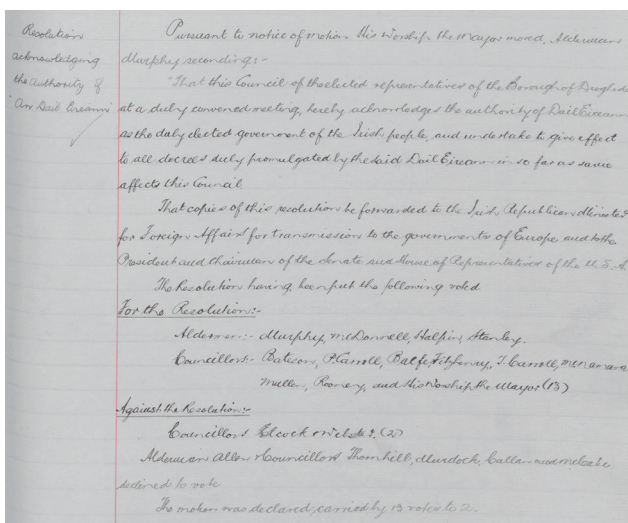 Resolution
acknowledging
the authority of
"An Dail Eireann"
Pursuant to notice of motion His Worship the Mayor moved, Alderman
Murphy seconding:-
"That this Council of the elected representatives of the Borough of Drogheda
at a duly convened meeting, hereby acknowledges the authority of Dail Eireann
as the duly elected government of the Irish people, and undertake to give effect
to all decrees duly promulgated by the said Dail Eireann in so far as same
affects this Council
That copies of this resolution be forwarded to the Irish Republican Minister
for Foreign Affairs for transmission to the governments of Europe and to the
President and chairman of the Senate and House of Representatives of the U.S.A.
The Resolution having been put the following voted
For the Resolution:-
Aldermen:- Murphy, McDonnell, Halpin, Stanley.
Councillors:- Bateson, P. Carroll, Balfe, Fitzharry, T. Carroll, McNamara
Mullen, Rooney, and His Worship the Mayor (13)
Against the Resolution:-
Councillors Elcock & (2)
Alderman Allen & Councillors Thornhill, Murdock, Callan and McCabe
declined to vote
The motion was declared carried by 13 votes to 2.